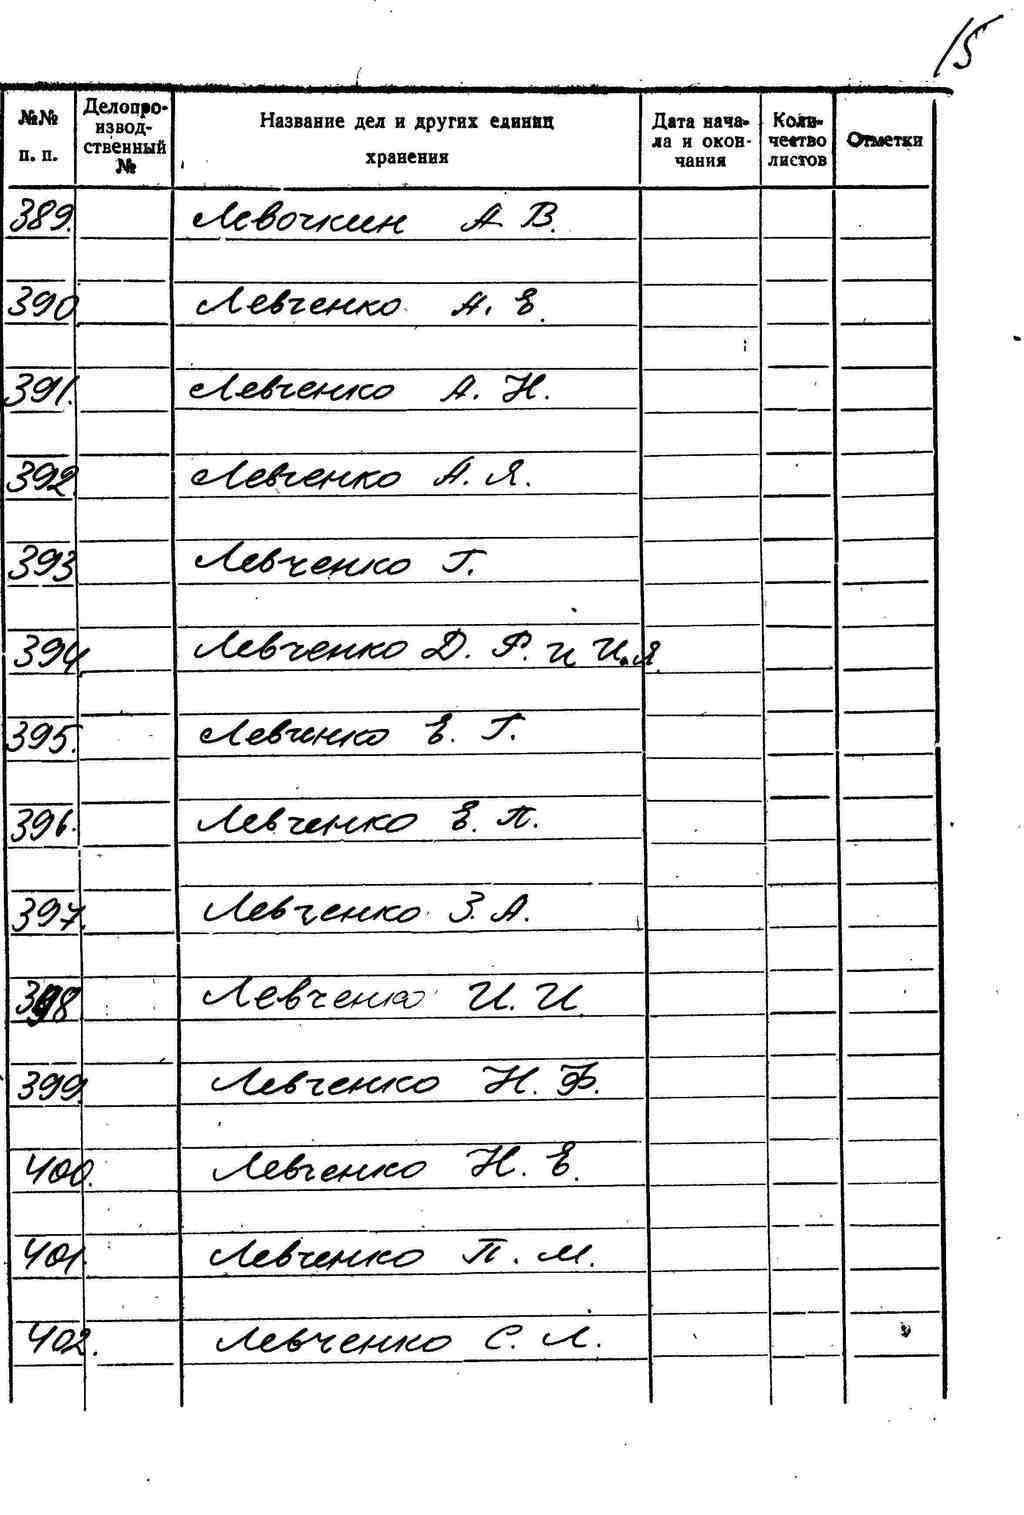 15
№№ п. п. Делопроизводственный № Название дел и других единиц хранения Дата начала и окончания Количество листов Отметки
389. Левочкин А В.
390 Левченко А. Е.
391. Левченко А. Н.
392 Левченко А. Я.
393 Левченко Г.
394 Левченко Д. Р. и И. Я.
395. Левченко Е. Г.
396. Левченко Е. П.
397. Левченко З. А.
398 Левченко И. И
399 Левченко Н. Ф.
400. Левченко Н. Е.
401. Левченко П. М.
402. Левченко С. Л.